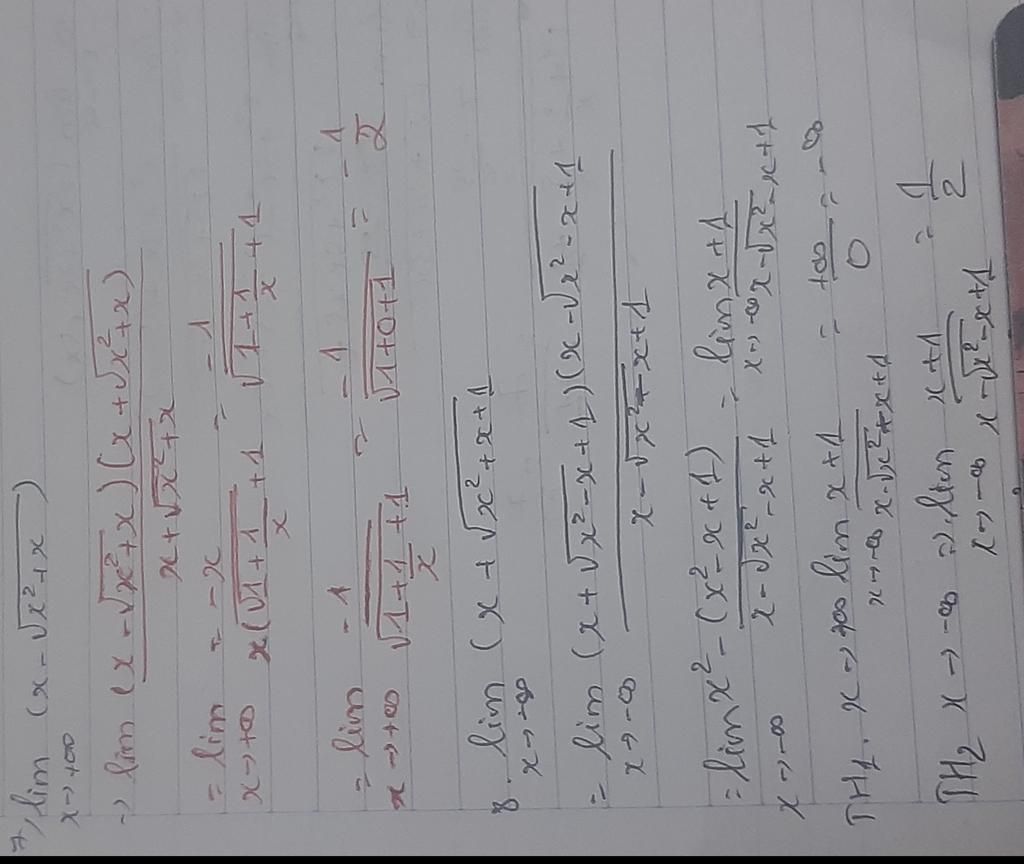 7, lim (x - √(x² + x))
x → +∞
→ lim (x - √(x² + x)) (x + √(x² + x)) / (x + √(x² + x))
= lim = -x / x(√(1 + 1/x) + 1 = -1 / √(1 + 1/x) + 1
x → +∞
= lim -1 / √(1 + 1/x) + 1 = -1 / √(1 + 0 + 1) = -1/2
x → +∞
8. lim (x + √(x² + x + 1)
x → -∞
= lim (x + √(x² - x + 1)) (x - √(x² - x + 1)) / (x - √(x² - x + 1))
x → -∞
= lim x² - (x² - x + 1) / (x - √(x² - x + 1)) = lim x + 1 / (x - √(x² - x + 1))
x → -∞ x → -∞
TH1. x → +∞ lim x + 1 / (x - √(x² - x + 1)) = +∞/0 = -∞
x → -∞
TH2 x → -∞ ⇒ lim x + 1 / (x - √(x² - x + 1)) = 1/2
x → -∞